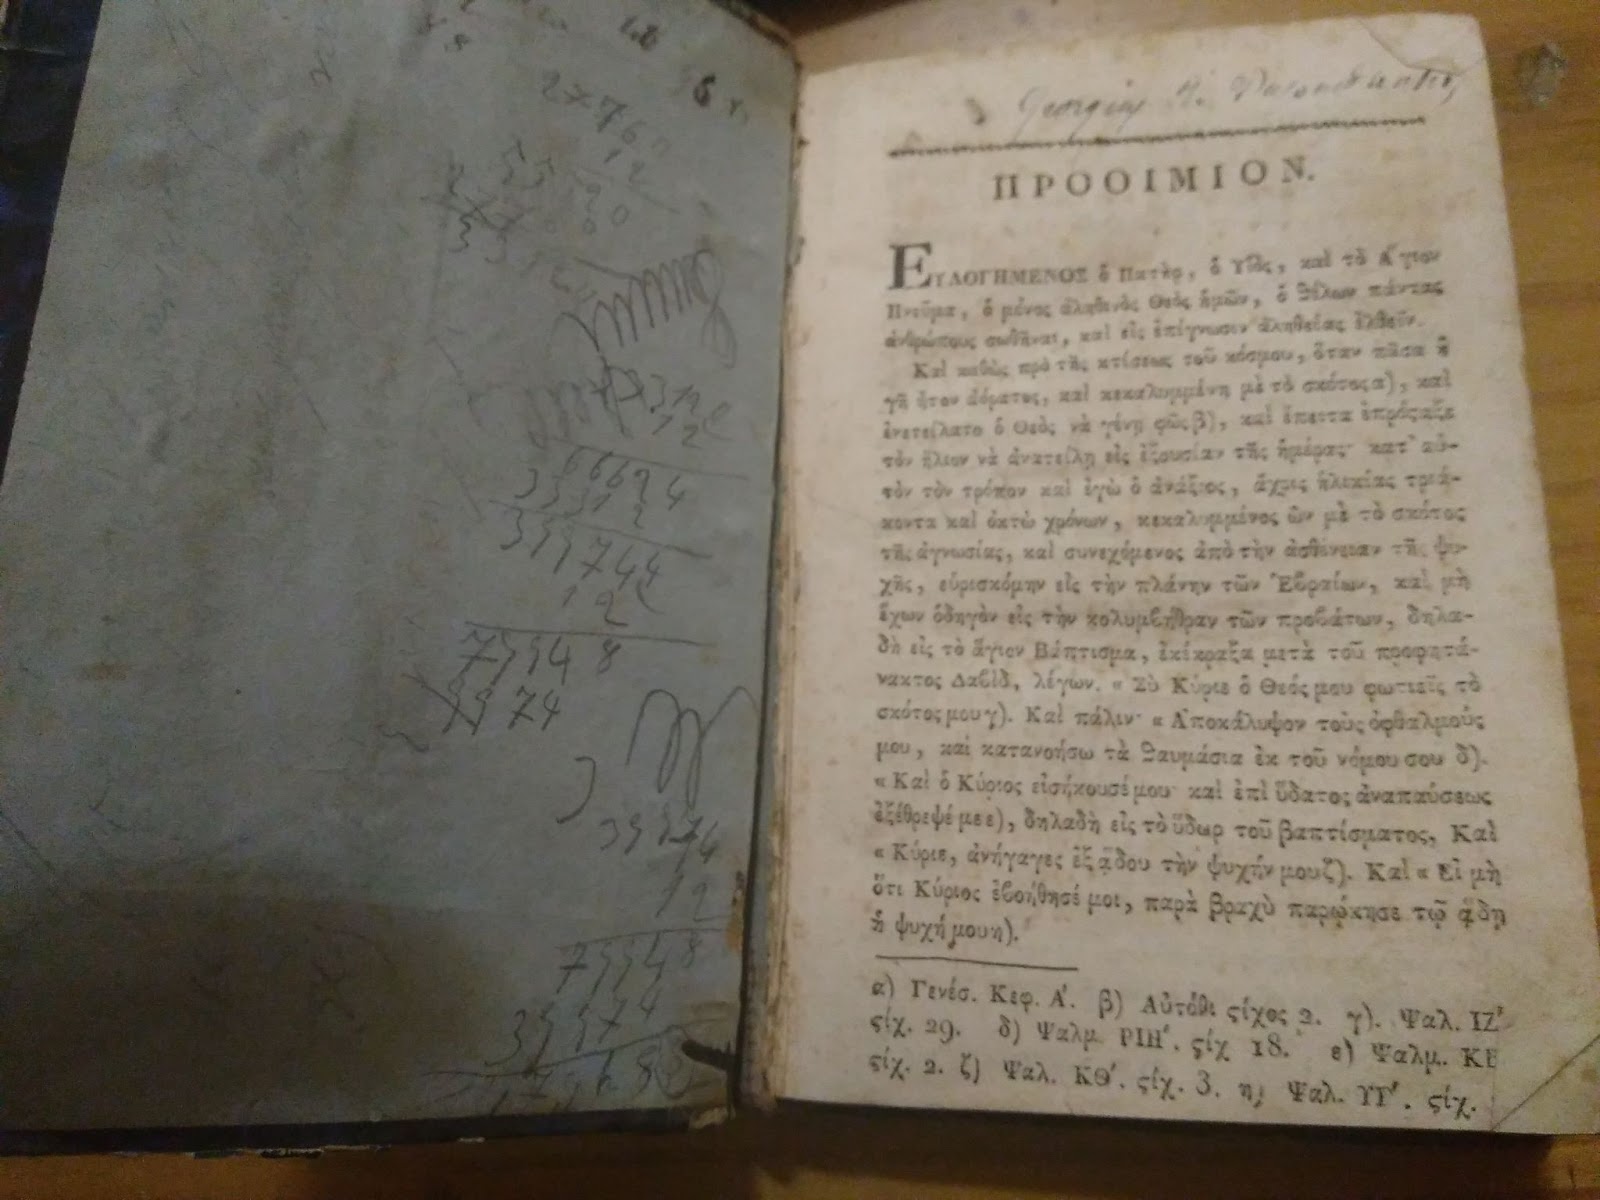 27760
12
33312
12
66624
33312
399744
12
79948
39974
39974
12
79948
39974
ΠΡΟΟΙΜΙΟΝ.
ΕΥΛΟΓΗΜΕΝΟΣ ὁ Πατὴρ, ὁ Υἱὸς, καὶ τὸ Ἅγιον
Πνεῦμα, ὁ μόνος ἀληθινὸς Θεὸς ἡμῶν, ὁ θέλων πάντας
ἀνθρώπους σωθῆναι, καὶ εἰς ἐπίγνωσιν ἀληθείας ἐλθεῖν.
Καὶ καθὼς πρὸ τῆς κτίσεως τοῦ κόσμου, ὅταν πᾶσα ἡ
γῆ ἦτον ἀόρατος, καὶ κεκαλυμμένη μὲ τὸ σκότος α), καὶ
ἐνετείλατο ὁ Θεὸς νὰ γένῃ φῶς β), καὶ ἔπειτα ἐπρόςαξε
τὸν ἥλιον νὰ ἀνατείλῃ εἰς ἐξουσίαν τῆς ἡμέρας· κατ' αὐ-
τὸν τὸν τρόπον καὶ ἐγὼ ὁ ἀνάξιος, ἄχρις ἡλικίας τριά-
κοντα καὶ ὀκτὼ χρόνων, κεκαλυμμένος ὢν μὲ τὸ σκότος
τῆς ἀγνωσίας, καὶ συνεχόμενος ἀπὸ τὴν ἀσθένειαν τῆς ψυ-
χῆς, εὑρισκόμην εἰς τὴν πλάνην τῶν Ἑβραίων, καὶ μὴ
ἔχων ὁδηγὸν εἰς τὴν κολυμβήθραν τῶν προβάτων, δηλα-
δὴ εἰς τὸ ἅγιον Βάπτισμα, ἐκέκραξα μετὰ τοῦ προφητά-
νακτος Δαβὶδ, λέγων. « Σὺ Κύριε ὁ Θεός μου φωτιεῖς τὸ
σκότος μου γ). Καὶ πάλιν· « Ἀποκάλυψον τοὺς ὀφθαλμούς
μου, καὶ κατανοήσω τὰ θαυμάσια ἐκ τοῦ νόμου σου δ).
« Καὶ ὁ Κύριος εἰσήκουσέ μου· καὶ ἐπὶ ὕδατος ἀναπαύσεως
ἐξέθρεψέ με ε), δηλαδὴ εἰς τὸ ὕδωρ τοῦ βαπτίσματος, Καὶ
« Κύριε, ἀνήγαγες ἐξ ᾅδου τὴν ψυχήν μου ζ). Καὶ « Εἰ μὴ
ὅτι Κύριος ἐβοήθησέ μοι, παρὰ βραχὺ παρῴκησε τῷ ᾅδῃ
ἡ ψυχή μου η).
α) Γενέσ. Κεφ. Α'. β) Αὐτόθι ςίχος 2. γ). Ψαλ. ΙΖ'
ςίχ. 29. δ) Ψαλμ. ΡΙΗ'. ςίχ 18. ε) Ψαλμ. ΚΒ
ςίχ. 2. ζ) Ψαλ. ΚΘ'. ςίχ. 3. η) Ψαλ. ϟΓ'. ςίχ.